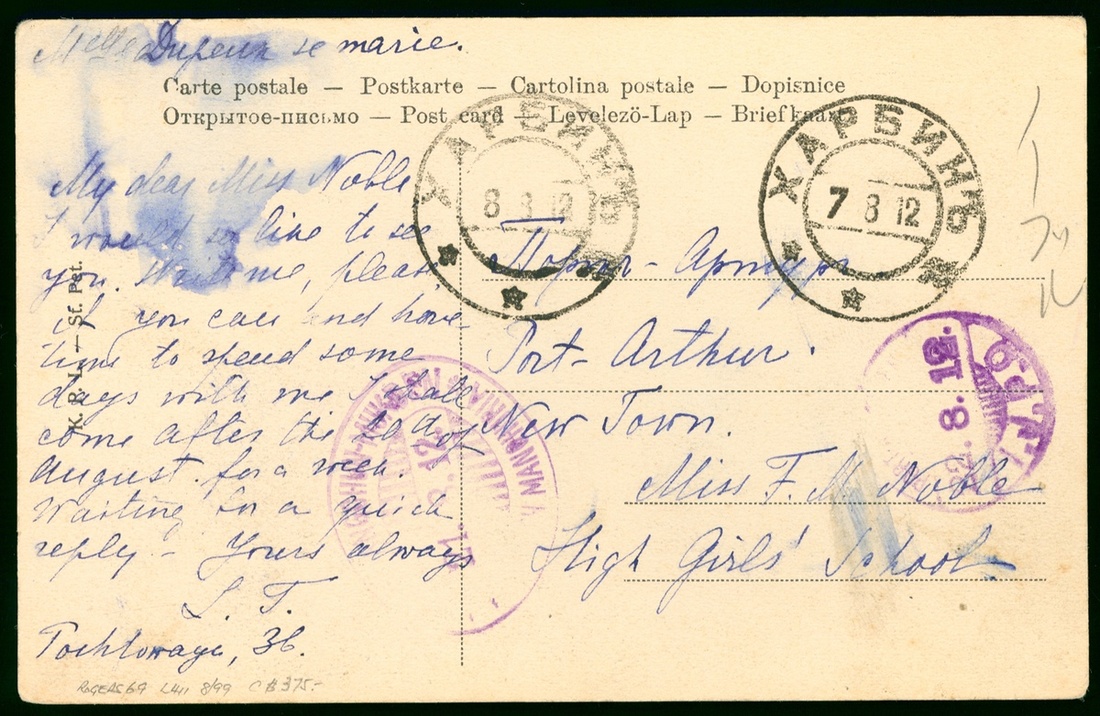 Melle Dupeux se marie.
Carte postale — Postkarte — Cartolina postale — Dopisnice
Открытое-письмо — Post card — Levelezö-Lap — Briefkaart
My dear Miss Noble
I would so like to see
you. Write me, please,
if you can and have
time to spend some
days with me I shall
come after the 20 of
August for a week.
Waiting for a quick
reply – Yours always
L. T.
36.
St. Pet.
ХАРБИНЪ
8 8 12
ХАРБИНЪ
7 8 12
Портъ-Артуръ
Port-Arthur.
New Town.
Miss F. M. Noble
High Girls' School
8. 12.
MANCHURIA
Rogers 69 L411 8/99 C $375.-